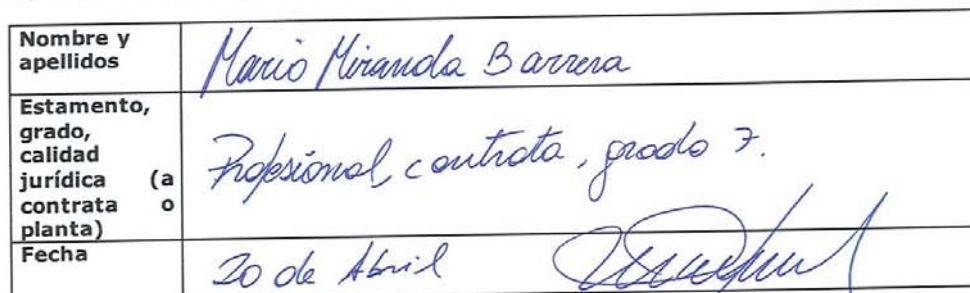 Nombre y
apellidos
Mario Miranda Barrera
Estamento,
grado,
calidad
jurídica (a
contrata o
planta)
Profesional, contrata, grado 7.
Fecha
20 de Abril